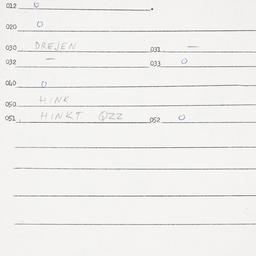 012 0
020 0
030 DREJEN 031 —
032 — 033 0
040 0
050 HINK
051 HINKT QZZ 052 0